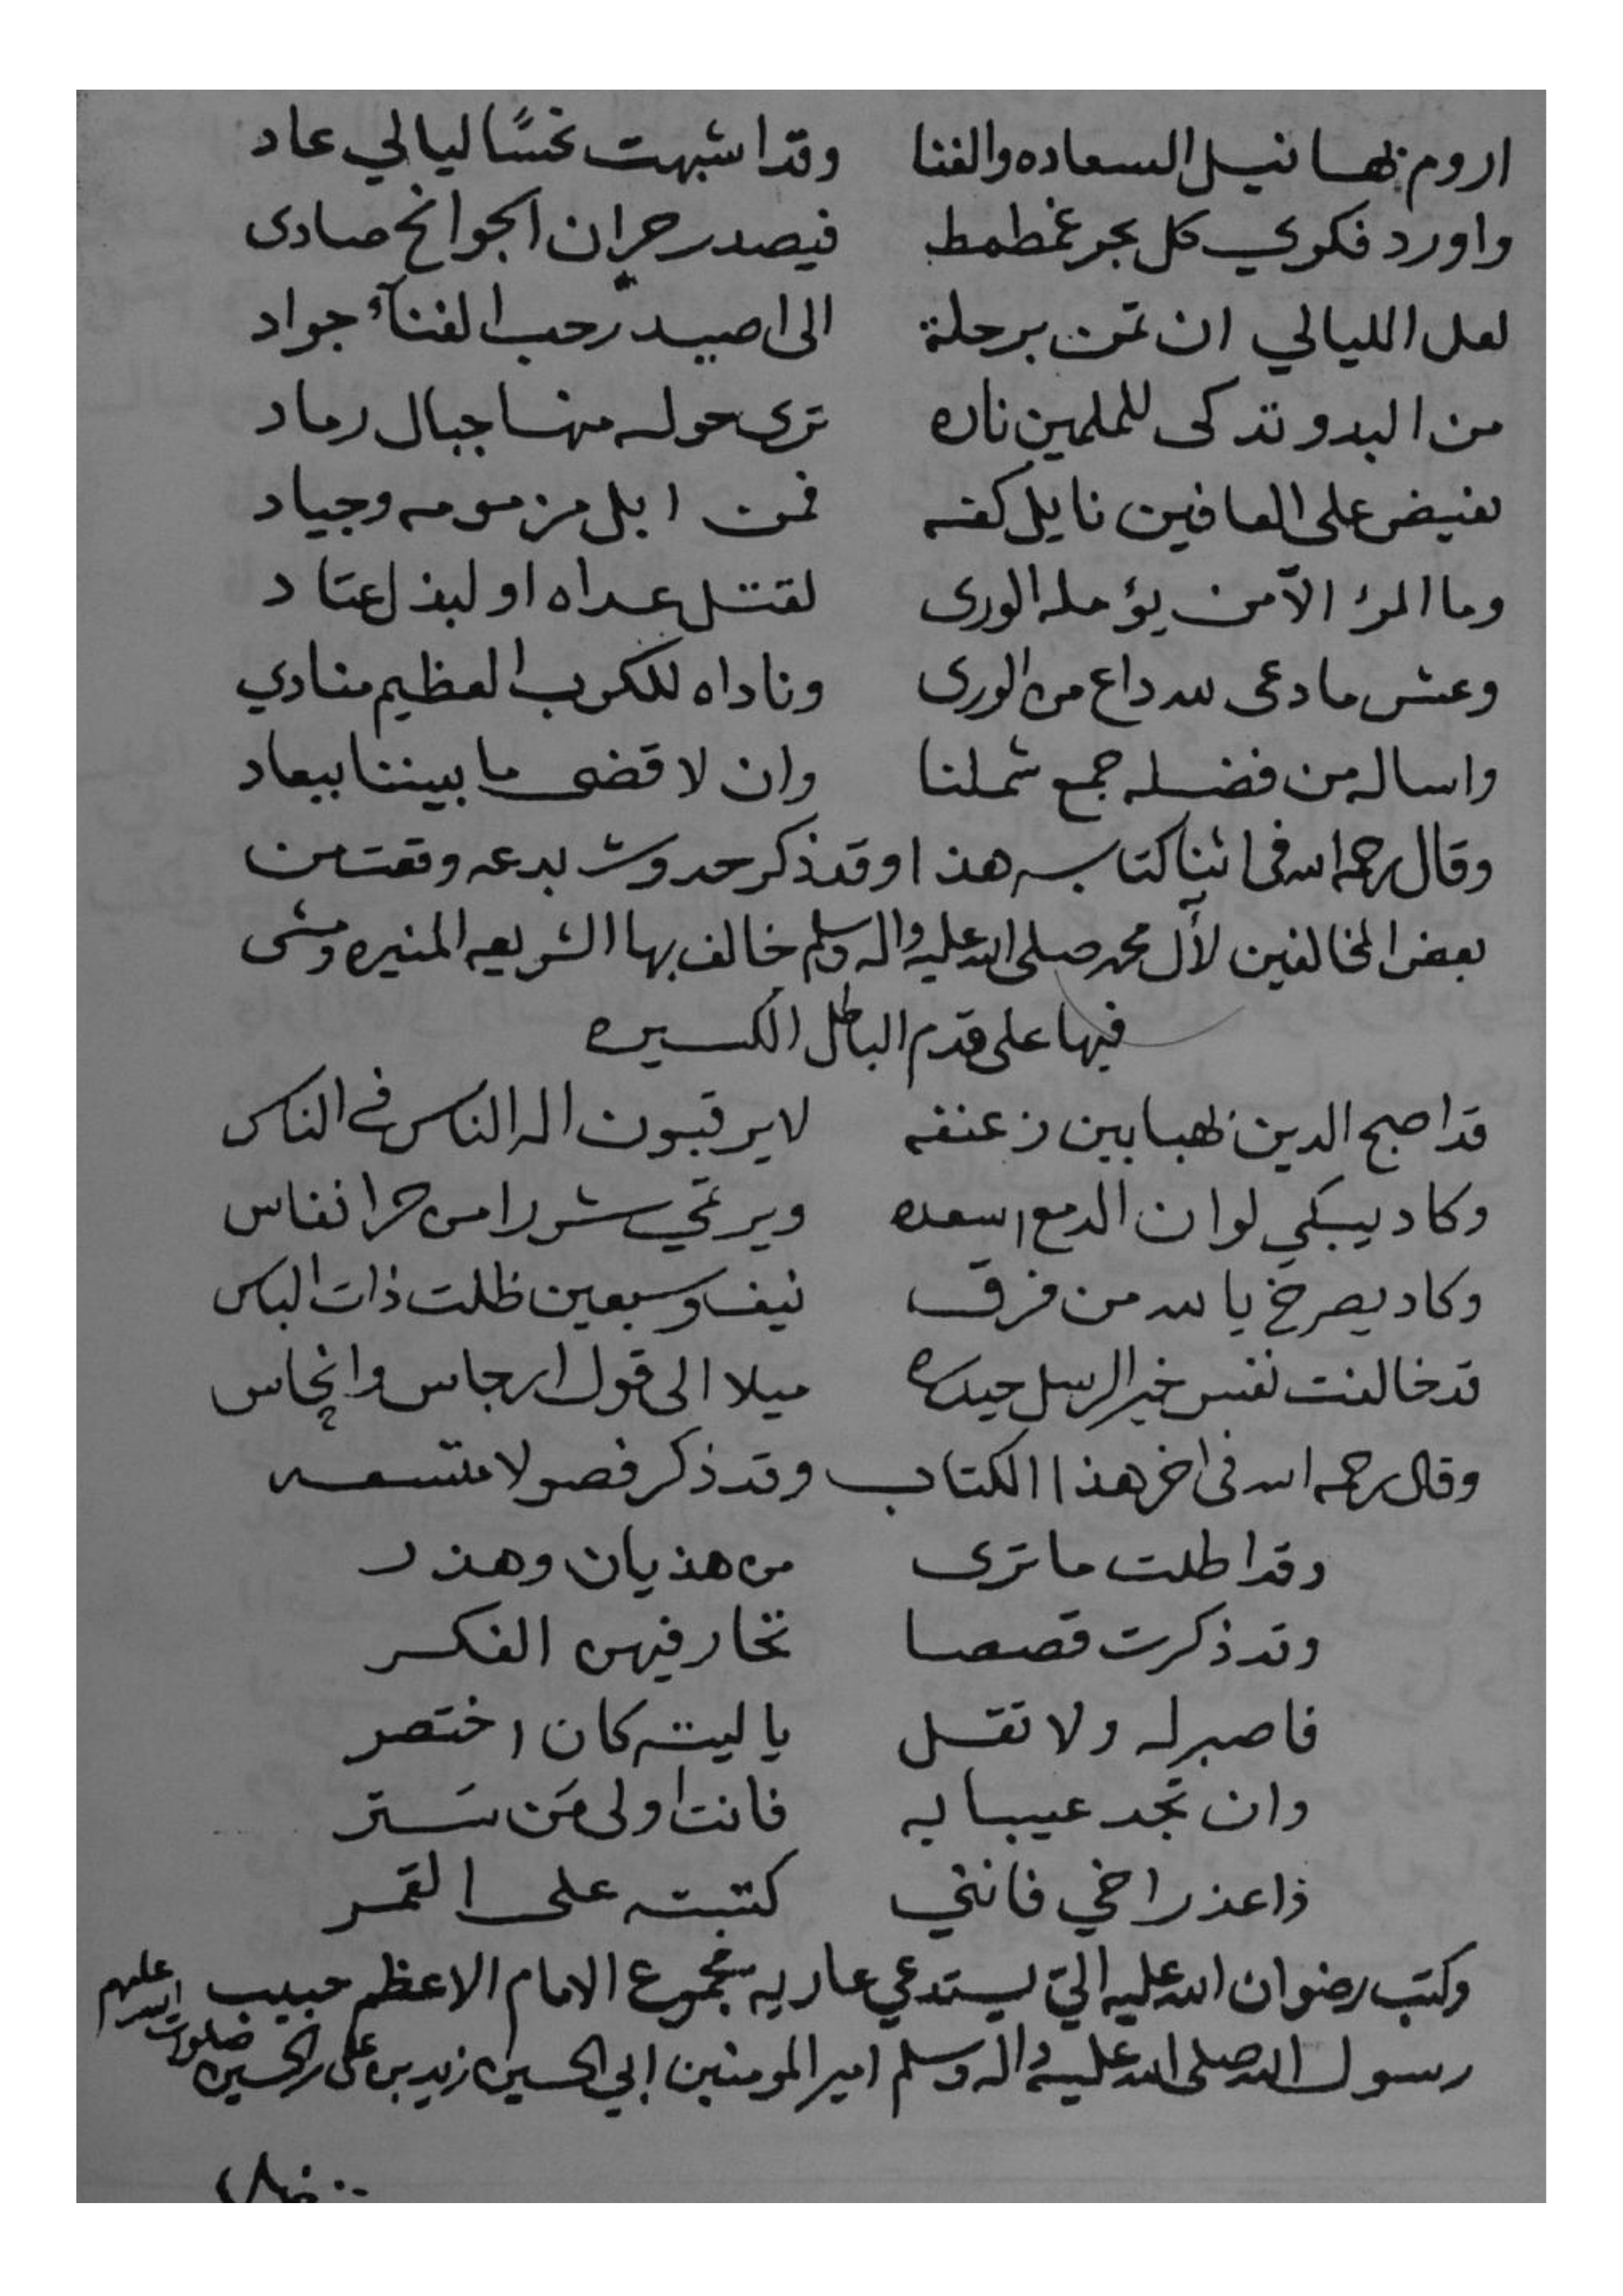 اروم بها نيل السعاده والغنا وقد اشبهت نحسًا ليالي عاد
واورد فكري كل بحر غطمط فيصدر حران الجوانح صادى
لعل الليالي ان تمن برحلة الى اصيد رحب الفنآء جواد
من البدو تذكى للملمين ناره ترى حوله منها جبال رماد
يفيض على العافين نايل كفه فمن ابل مزمومه وجياد
وما المرؤ الآمن يؤمله الورى لقتل عداه او لبذل عتاد
وعش ما دعى لله داع من الورى وناداه للكرب العظيم منادي
واساله من فضله جمع شملنا وان لا قضى ما بيننا ببعاد
وقال رحمه الله فى اثنا كتابه هذا وقد ذكر حدوث بدعه وقعت من
بعض المخالفين لآل محمد صلى الله عليه واله وسلم خالف بها الشريعه المنيره ومشى
فيها على قدم الباطل الكسيره
قد اصبح الدين نهبا بين زعنفه لا يرقبون اله الناس في الناس
وكاد يبكي لو ان الدمع اسعده ويرتمي شررا من حر انفاس
وكاد يصرخ يا لله من فرق نيف وسبعين ظلت ذات الباس
قد خالفت نفس خير الرسل حيدره ميلا الى قول ارجاس وانجاس
وقال رحمه الله فى اخر هذا الكتاب وقد ذكر فصولا متسعه
وقد اطلت ما ترى من هذيان وهذر
وقد ذكرت قصصا تحار فيهن الفكر
فاصبر له ولا تقل يا ليته كان اختصر
وان تجد عيبا به فانت اولى مَن سَتر
فاعذر اخي فانني كتبته على القمر
وكتب رضوان الله عليه الي يستدعي عاريه مجموع الامام الاعظم حبيب
رسول الله صلى الله عليه واله وسلم امير المومنين ابي الحسين زيد بن على بن الحسين صلوات الله عليهم